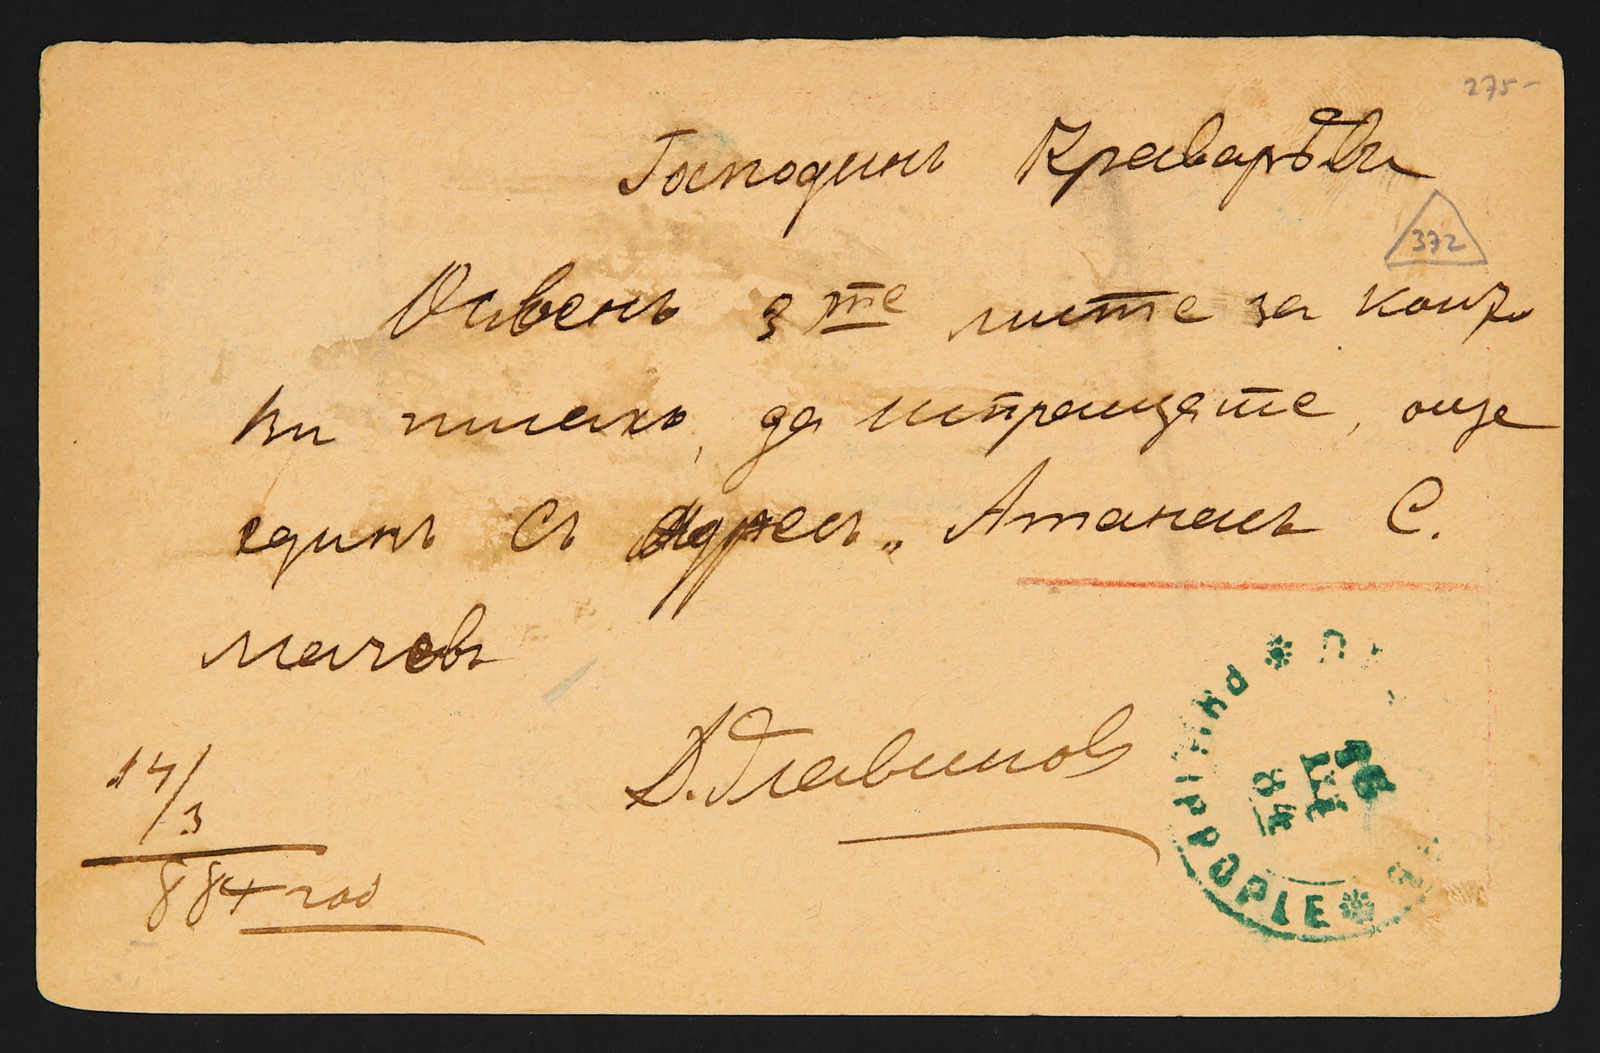 275-
Господинъ Краварѣвъ
372
Освенъ 3 те листе за коиҭо
Ви писахъ, да испращате, още
единъ съ Адресъ „ Атанасъ С.
мачевъ
Д. Главинов
14/3
884 год
PHILIPPOPLE
15
III
84